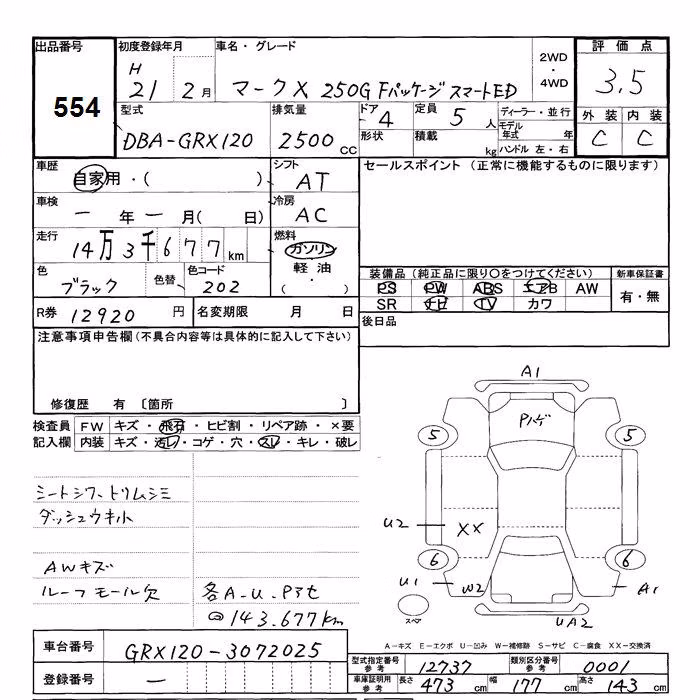 出品番号 初度登録年月 車名・グレード 2WD・4WD 評価点
554 H 21 2月 マークX 250G Fパッケージ スマートED 3.5
型式 排気量 ドア 定員 ディーラー・並行 外装 内装
DBA-GRX120 2500cc 4 5人 モデル年式 年 C C
形状 積載 kg ハンドル 左・右
車歴 シフト セールスポイント (正常に機能するものに限ります)
自家用・( ) AT
車検 冷房
一年一月( 日) AC
走行 燃料
14万3千677km ガソリン
軽油
・( )
色 色替 色コード 装備品 (純正品に限り○をつけてください) 新車保証書
ブラック 202 PS PW ABS エアB AW 有・無
SR ナビ TV カワ
R券 12920円 名変期限 月 日 後日品
注意事項申告欄 (不具合内容等は具体的に記入して下さい)
修復歴 有 〔箇所 〕
検査員 FW キズ・飛石・ヒビ割・リペア跡・×要
記入欄 内装 キズ・汚レ・コゲ・穴・スレ・キレ・破レ
シートシワ、トリムシミ
ダッシュウキ
AWキズ
ルーフモール欠
各A-U-
@143.677km
A1
5 5
U2 XX
6 6
U1 W2 A1
スペア UA2
A-キズ E-エクボ U-凹み W-補修跡 S-サビ C-腐食 XX-交換済
車台番号 GRX120-3072025
登録番号 一
型式指定番号 参考 12737 類別区分番号 参考 0001
車庫証明用 参考 長さ 473cm 幅 177cm 高さ 143cm